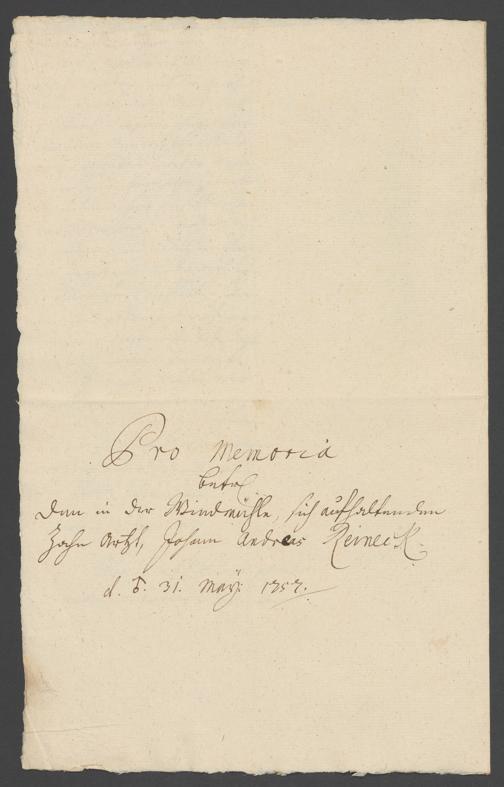 Pro Memoria
betr
den in der Windmühle, sich aufhaltenden
Zahn Artzt, Johann Andreas Reineck.
d. 31. May 1757.